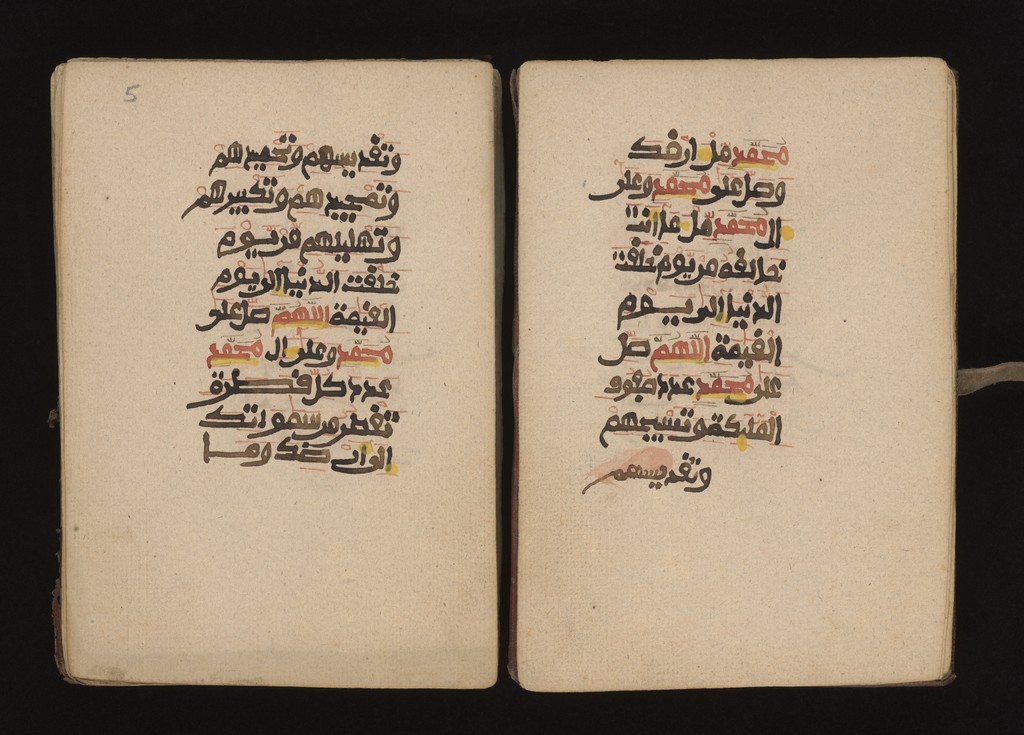 محمد مل ارضك
وصل على محمد وعلى
ال محمد مل عدا انت
خالفه من يوم خلقت
الدنيا الى يوم
القيمة اللهم صل
على محمد عدد صفوف
الملىكة وتسبيحهم
وتقديسهم
5
وتقديسهم وتحميدهم
وتمجيدهم وتكبيرهم
وتهليلهم من يوم
خلقت الدنيا الى يوم
القيمة اللهم صل على
محمد وعلى ال محمد
عدد كل قطرة
تقطر من سمواتك
الى ارضك وما